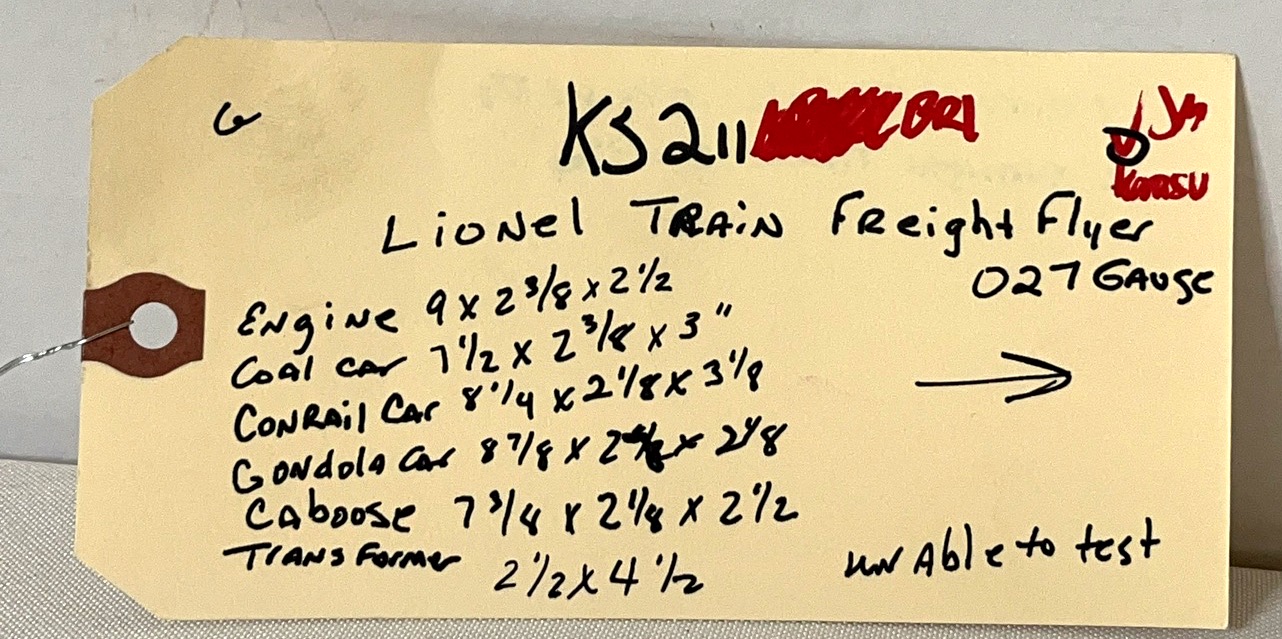 G
KS211 BR1
Lionel TRAiN Freight Flyer
027 GAUGE
ENgiNE 9 x 2 3/8 x 2 1/2
Coal car 7 1/2 x 2 3/8 x 3"
CONRAil CAr 8 1/4 x 2 1/8 x 3 1/8
GONdola Car 8 7/8 x 2 x 2 1/8
CAboose 7 3/4 x 2 1/8 x 2 1/2
TrANSFormer 2 1/2 x 4 1/2
uNAble to test